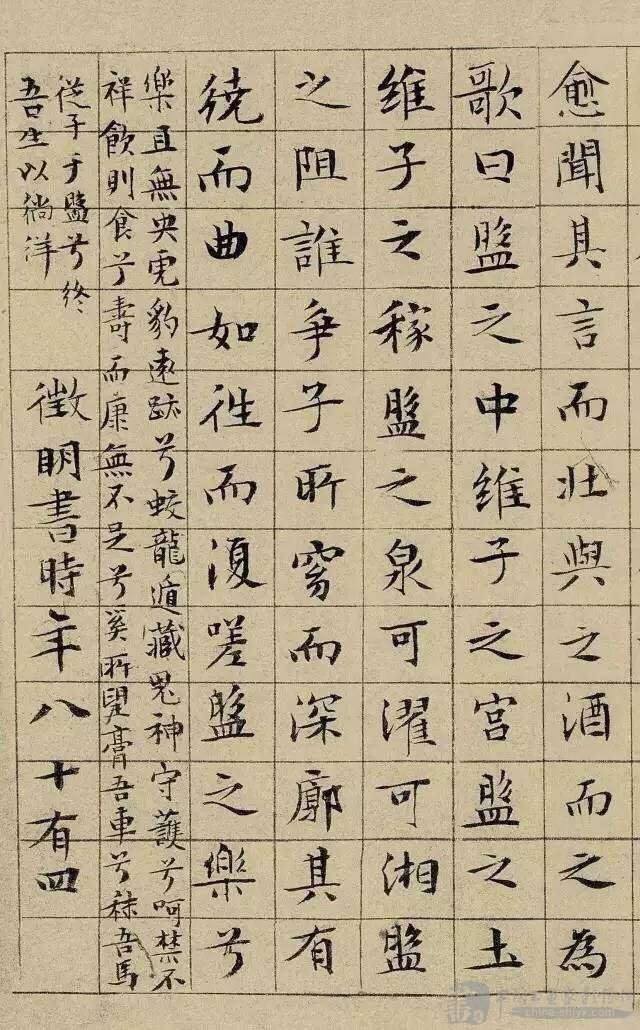 愈聞其言而壯與之酒而之為
歌曰盤之中維子之宮盤之土
維子之稼盤之泉可濯可湘盤
之阻誰爭子所窈而深廓其有
繞而曲如徃而復嗟盤之樂兮
樂且無央虎豹遠跡兮蛟龍遁藏鬼神守護兮呵禁不
祥飲則食兮壽而康無不足兮奚所望膏吾車兮秣吾馬
從子于盤兮終
吾生以徜洋
徵明書時年八十有四
china-shiyx.com